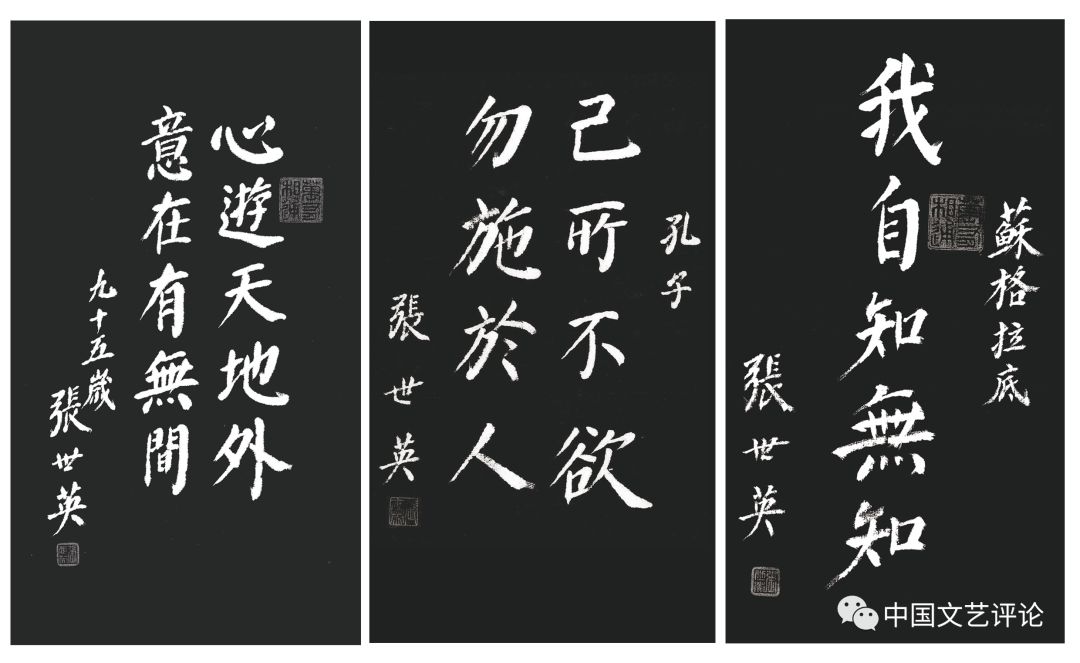 心遊天地外
意在有無間
九十五歲
張世英
孔子
己所不欲
勿施於人
張世英
蘇格拉底
我自知無知
張世英
中国文艺评论